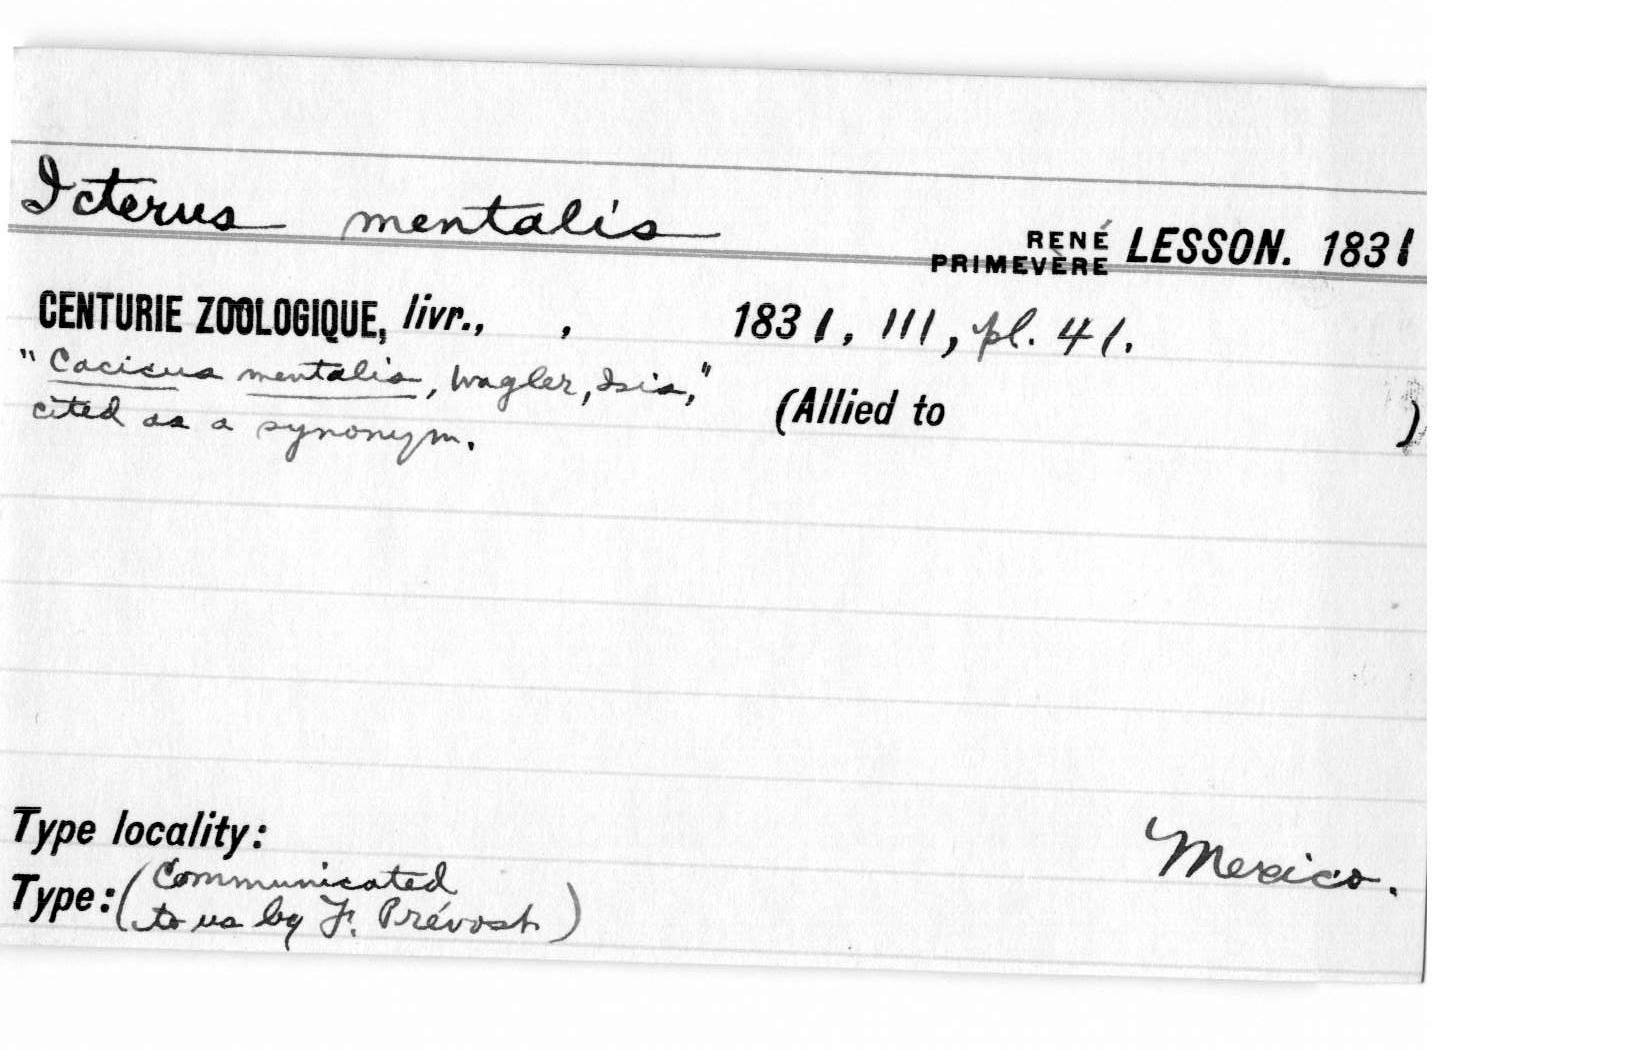 Icterus mentalis RENÉ PRIMEVÈRE LESSON. 1831
CENTURIE ZOOLOGIQUE, livr., , 1831, 111, pl. 41.
"Cacicus mentalis, Wagler, Isis,"
cited as a synonym. (Allied to )
Type locality: Mexico.
Type: (Communicated
to us by F. Prévost)